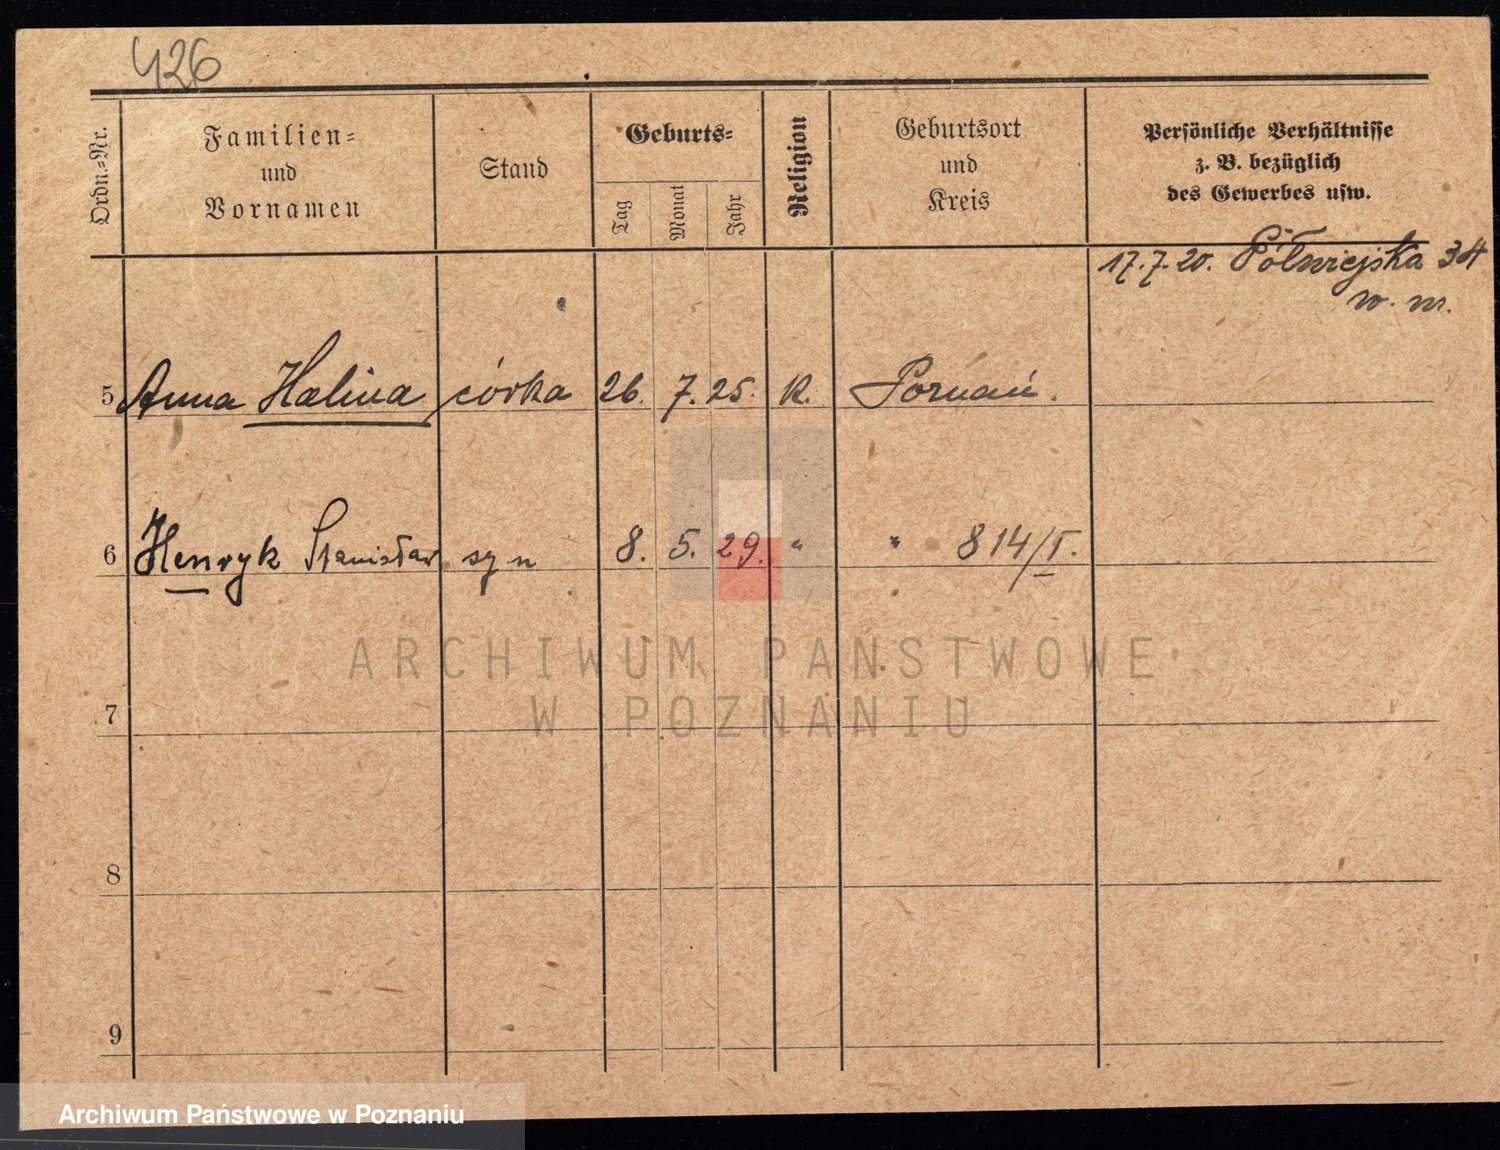 426
Ordn.=Nr.
Familien=
und
Vornamen
Stand
Geburts=
Tag
Monat
Jahr
Religion
Geburtsort
und
Kreis
Persönliche Verhältnisse
z. B. bezüglich
des Gewerbes usw.
17.7.20. Półwiejska 34
w. m.
5 Anna Halina córka 26. 7. 25. K. Poznań.
6 Henryk Stanisław syn 8. 5. 29. " " 814/I.
ARCHIWUM PAŃSTWOWE
W POZNANIU
7
8
9
Archiwum Państwowe w Poznaniu